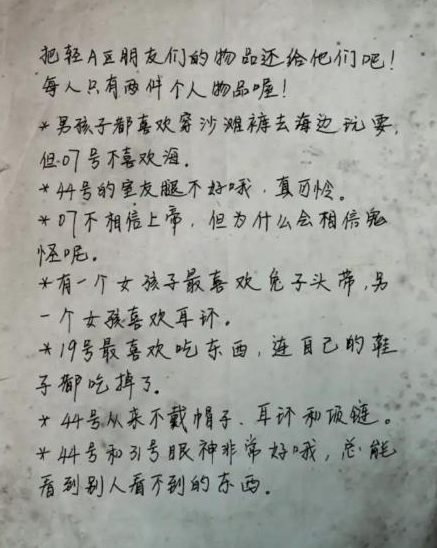 把轻A区朋友们的物品还给他们吧！
每人只有两件个人物品喔！
*男孩子都喜欢穿沙滩裤去海边玩耍，
但07号不喜欢海。
*44号的室友腿不好哦，真可怜。
*07不相信上帝，但为什么会相信鬼
怪呢。
*有一个女孩子最喜欢兔子头带，另
一个女孩喜欢耳环。
*19号最喜欢吃东西，连自己的鞋
子都吃掉了。
*44号从来不戴帽子、耳环和项链。
*44号和31号眼神非常好哦，总能
看到别人看不到的东西。